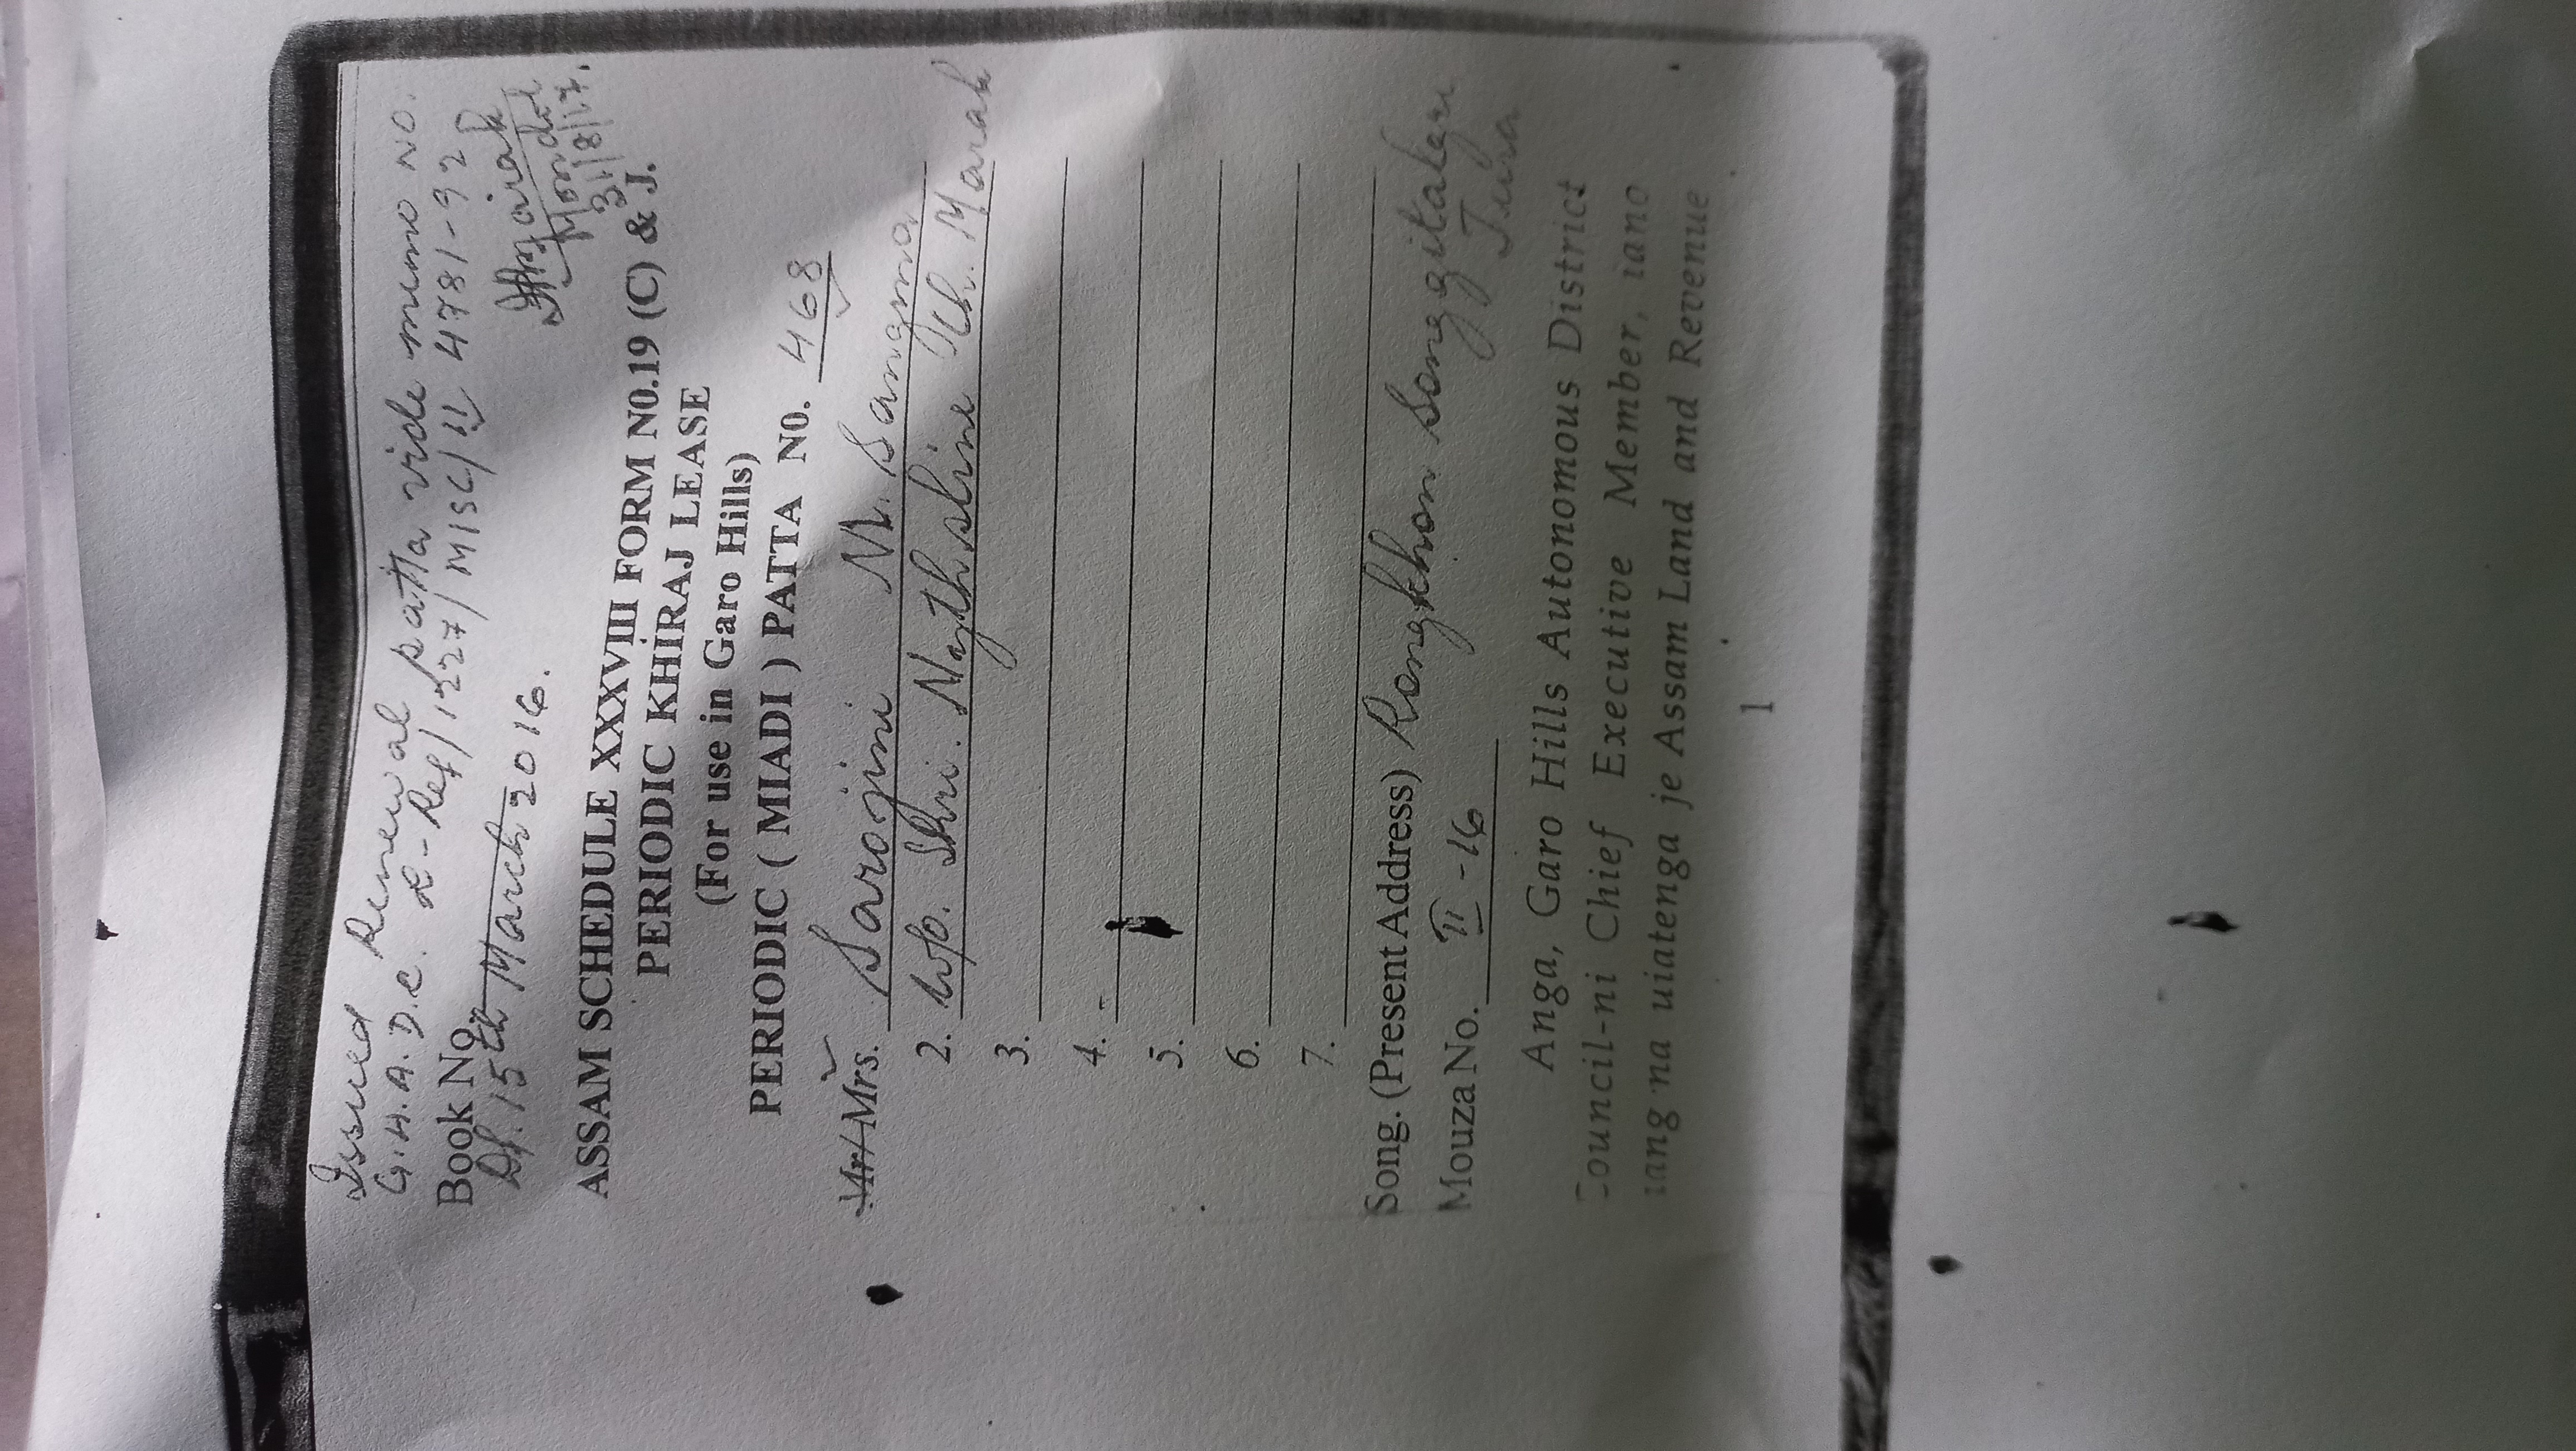 Issued Renewal patta vide memo NO.
G.H.A.D.C. R-Ref/127/MISC/11 4781-92
Book No.
Dt. 15th March 2016.
Mondol
31/8/17.
ASSAM SCHEDULE XXXVIII FORM N0.19 (C) & J.
PERIODIC KHIRAJ LEASE
(For use in Garo Hills)
PERIODIC ( MIADI ) PATTA N0. 468
Mr/Mrs. Sarojini M. Sangma
2. W/o. Shri. Nathsline Ch. Marak
3.
4.
5.
6.
7.
Song. (Present Address) Rongkhon Songgitalgre
Tura
Mouza No. II-16
Anga, Garo Hills Autonomous District
Council-ni Chief Executive Member, iano
iang'na uiatenga je Assam Land and Revenue
1